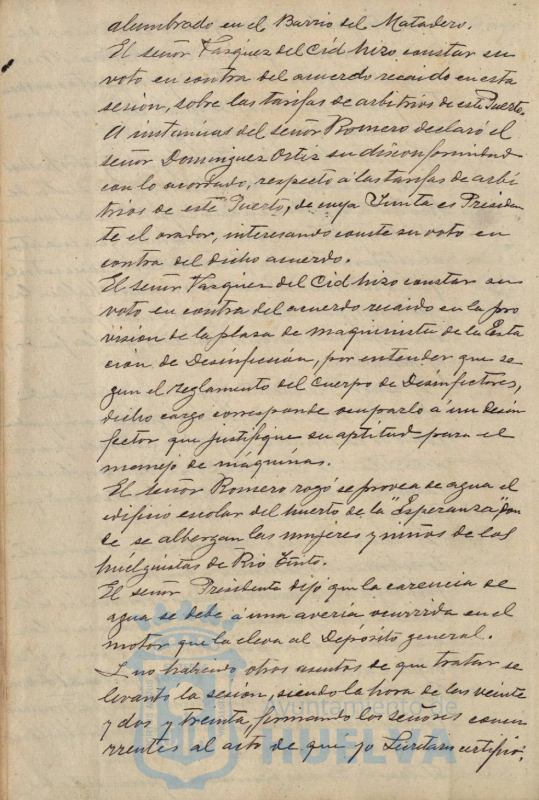 alumbrado en el Barrio del Matadero.
El señor Vasquez del Cid hizo constar su
voto en contra del acuerdo recaido en esta
sesion, sobre las tarifas de arbitrios de este Puerto.
A instancias del señor Romero declaró el
señor Dominguez Ortiz su disconformidad
con lo acordado, respecto á las tarifas de arbi
trios de este Puerto, de cuya Junta es Presiden
te el orador, interesando conste su voto en
contra del dicho acuerdo.
El señor Vasquez del Cid hizo constar su
voto en contra del acuerdo recaido en la pro
vision de la plaza de maquinista de la Esta
cion de Desinfeccion, por entender que se
gun el reglamento del Cuerpo de Desinfectores,
dicho cargo corresponde ocuparlo á un desin
fector que justifique su aptitud para el
manejo de máquinas.
El señor Romero rogó se provea de agua el
edificio escolar del huerto de la "Esperanza" don
de se albergan las mujeres y niños de los
huelguistas de Rio Tinto.
El señor Presidente dijo que la carencia de
agua se debe á una avería ocurrida en el
motor que la eleva al Depósito general.
Y no habiendo otros asuntos de que tratar se
levantó la sesion, siendo la hora de las veinte
y dos y treinta, firmando los señores concu
rrentes al acto de que yo Secretario certifico.
Ayuntamiento de
HUELVA